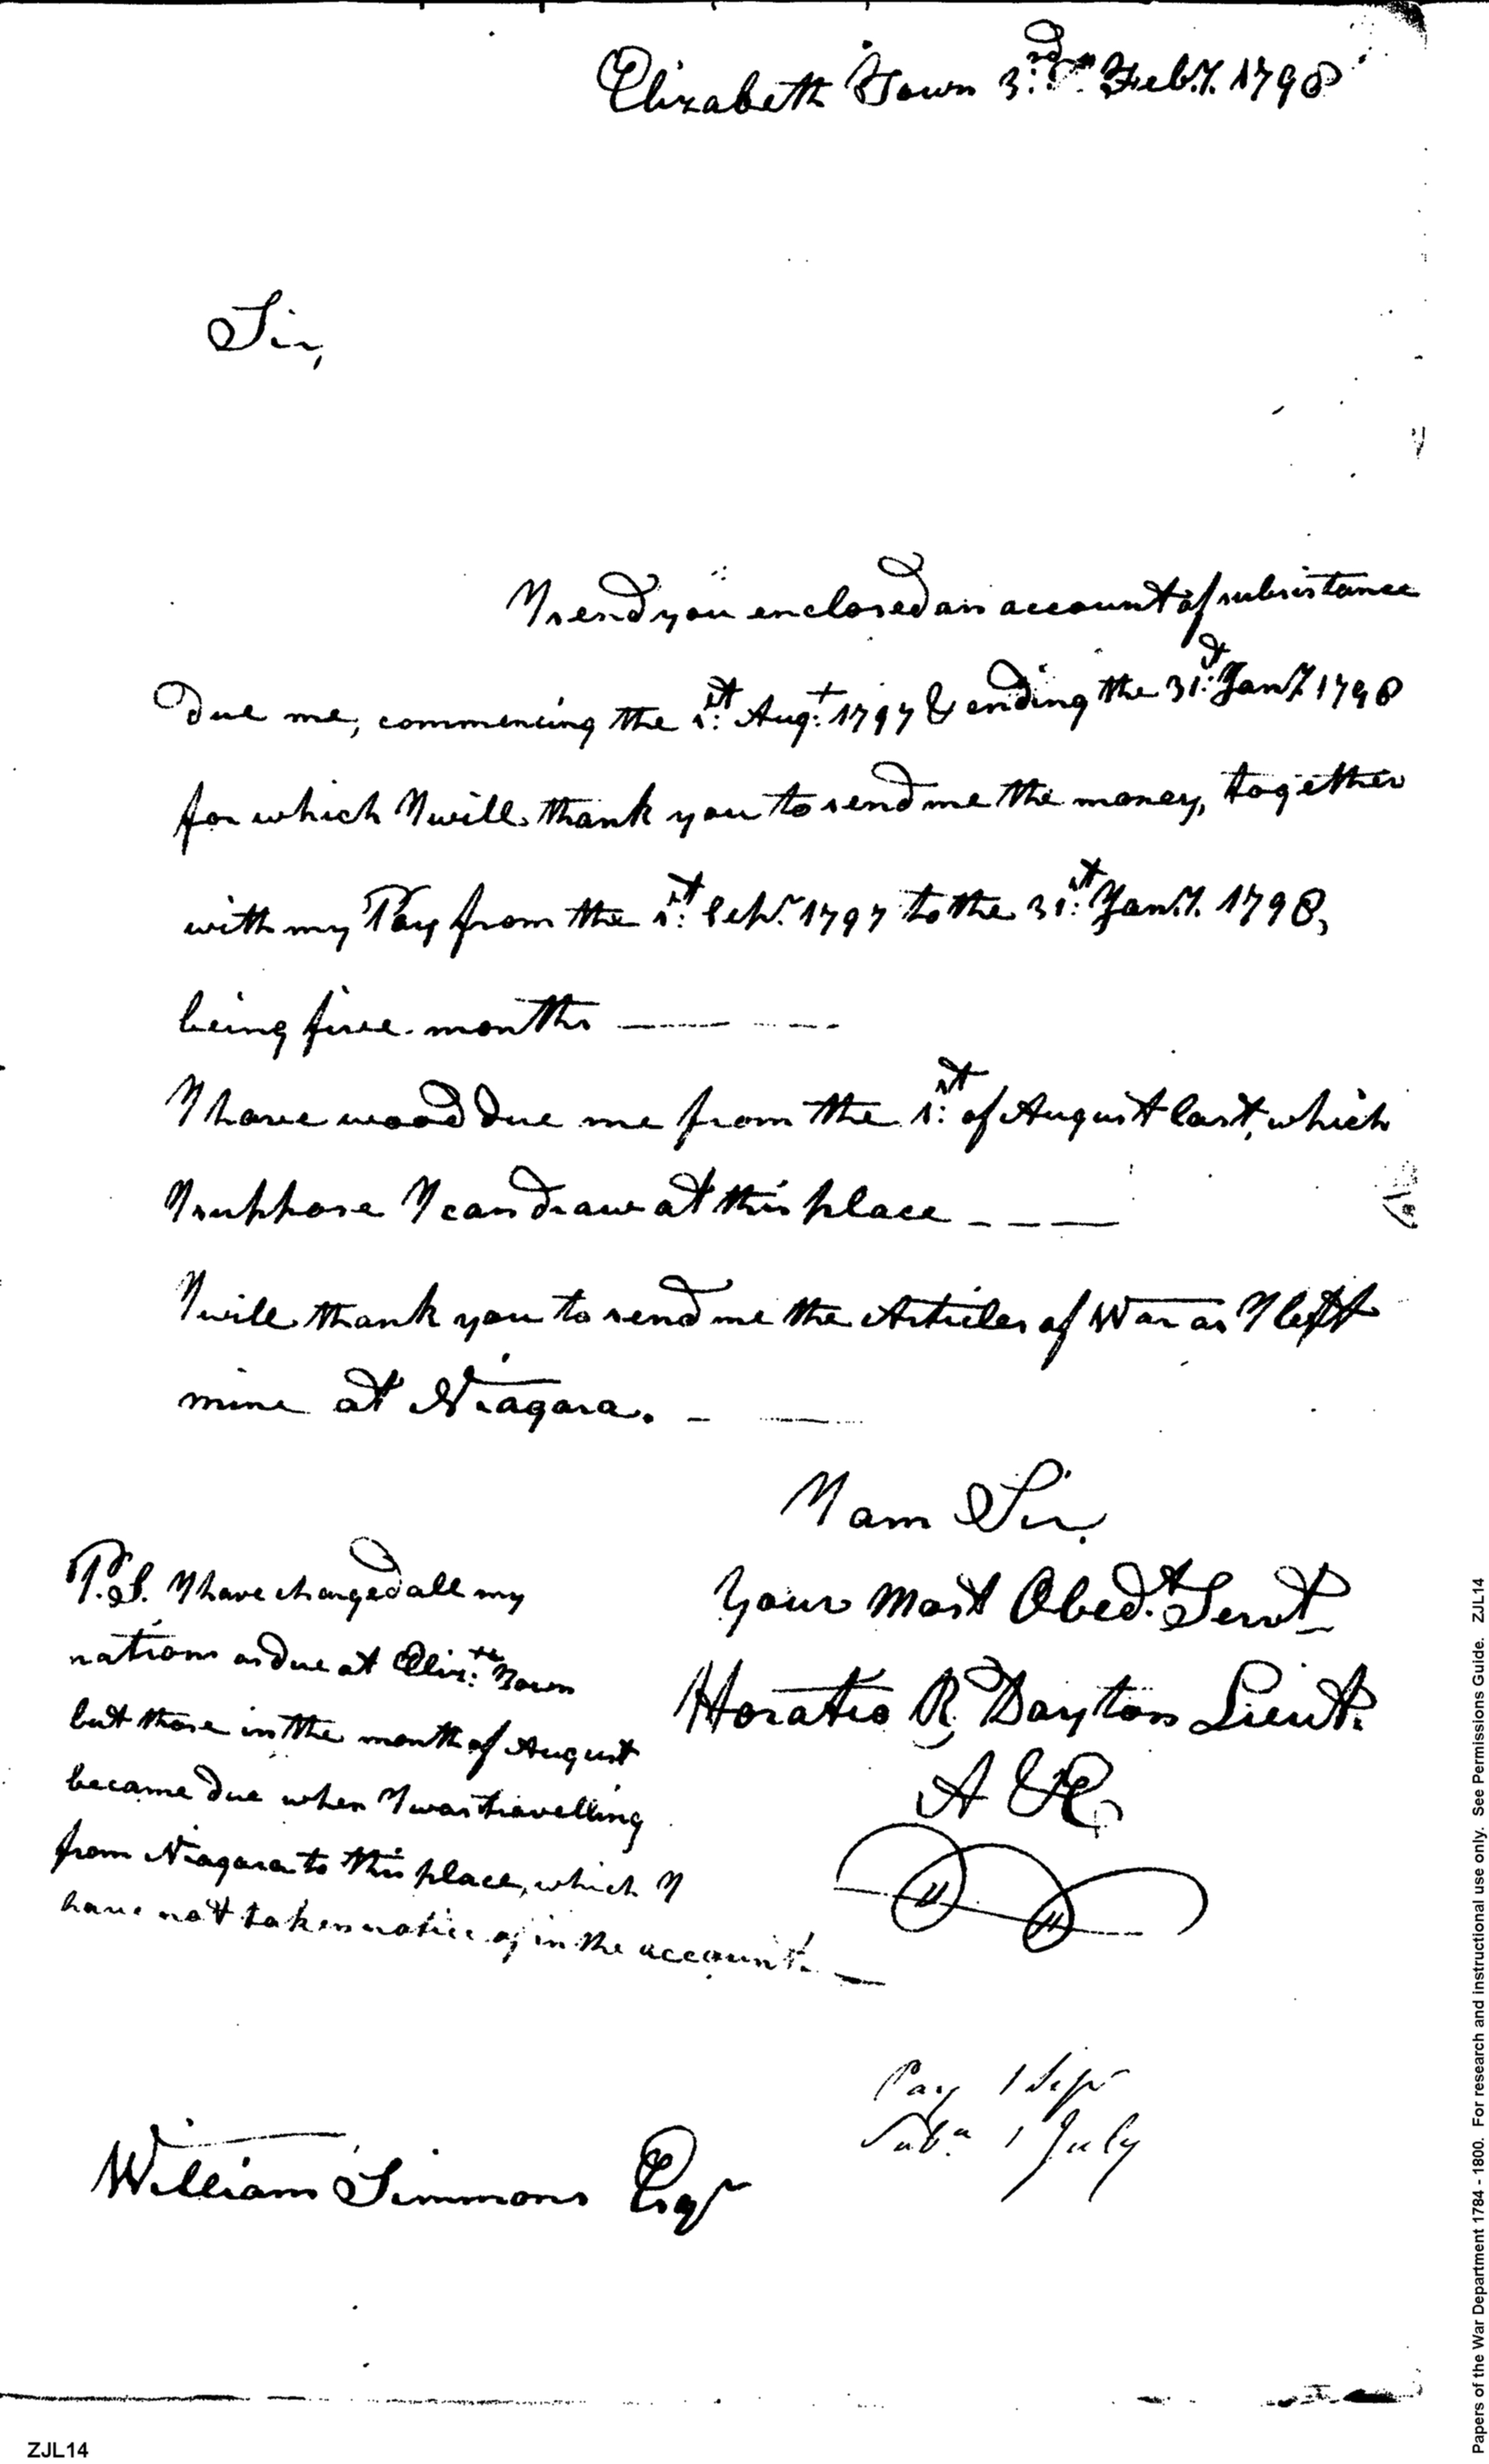 Elizabeth Town 3.rd Feb.y. 1798
Sir,
I send you enclosed an account of subsistance
due me, commencing the 1.st Aug.t 1797 & ending the 31.st Jan.y 1798
for which I will thank you to send me the money, together
with my Pay from the 1.st Sep.r 1797 to the 31.st Jan.y. 1798,
being five months
I have wood due me from the 1.st of August last, which
I suppose I can draw at this place
I will thank you to send me the Articles of War as I left
mine at Niagara.
I am Sir.
Your most Obed.t Servt
Horatio R. Dayton Lieut.
A & E
P.S. I have charged all my
rations as due at Eliz.th Town
but those in the month of August
became due when I was travelling
from Niagara to this place, which I
have not taken notice of in the account.
Pay 1 Sepr
Sub.n 1 July
William Simmons Esqr
ZJL14
Papers of the War Department 1784 - 1800. For research and instructional use only. See Permissions Guide. ZJL14